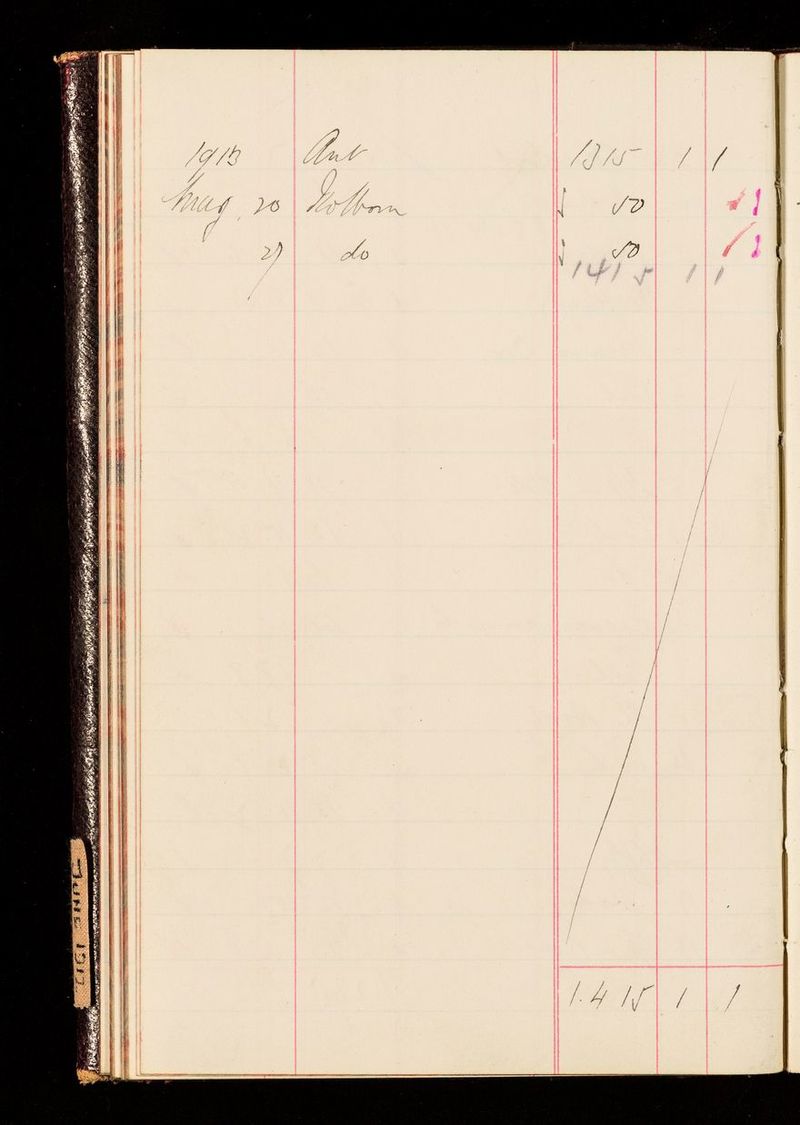 1913 Amt 1315 1 1
May 20 Holborn √ 50
27 do √ 50
1415 1 1
1.415 1 1
JUNE 1912.